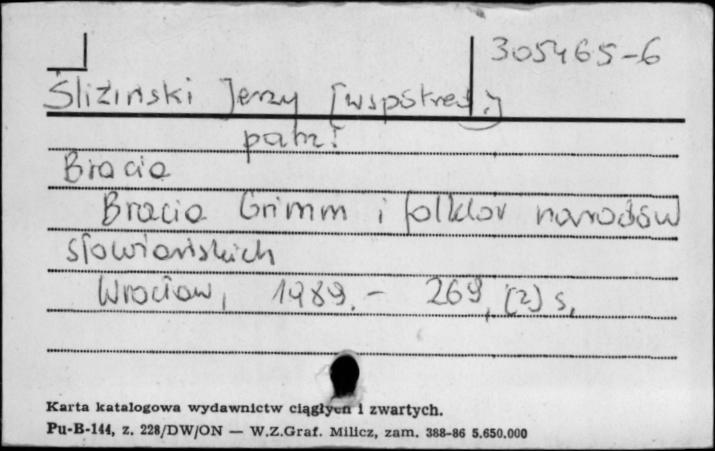 305465-6
Śliziński Jerzy [współred.]
patrz:
Bracia
Bracia Grimm i folklor narodów
słowiańskich
Wrocław, 1989. - 269, [2] s.
Karta katalogowa wydawnictw ciągłych i zwartych.
Pu-B-144, z. 228/DW/ON — W.Z.Graf. Milicz, zam. 388-86 5.650.000